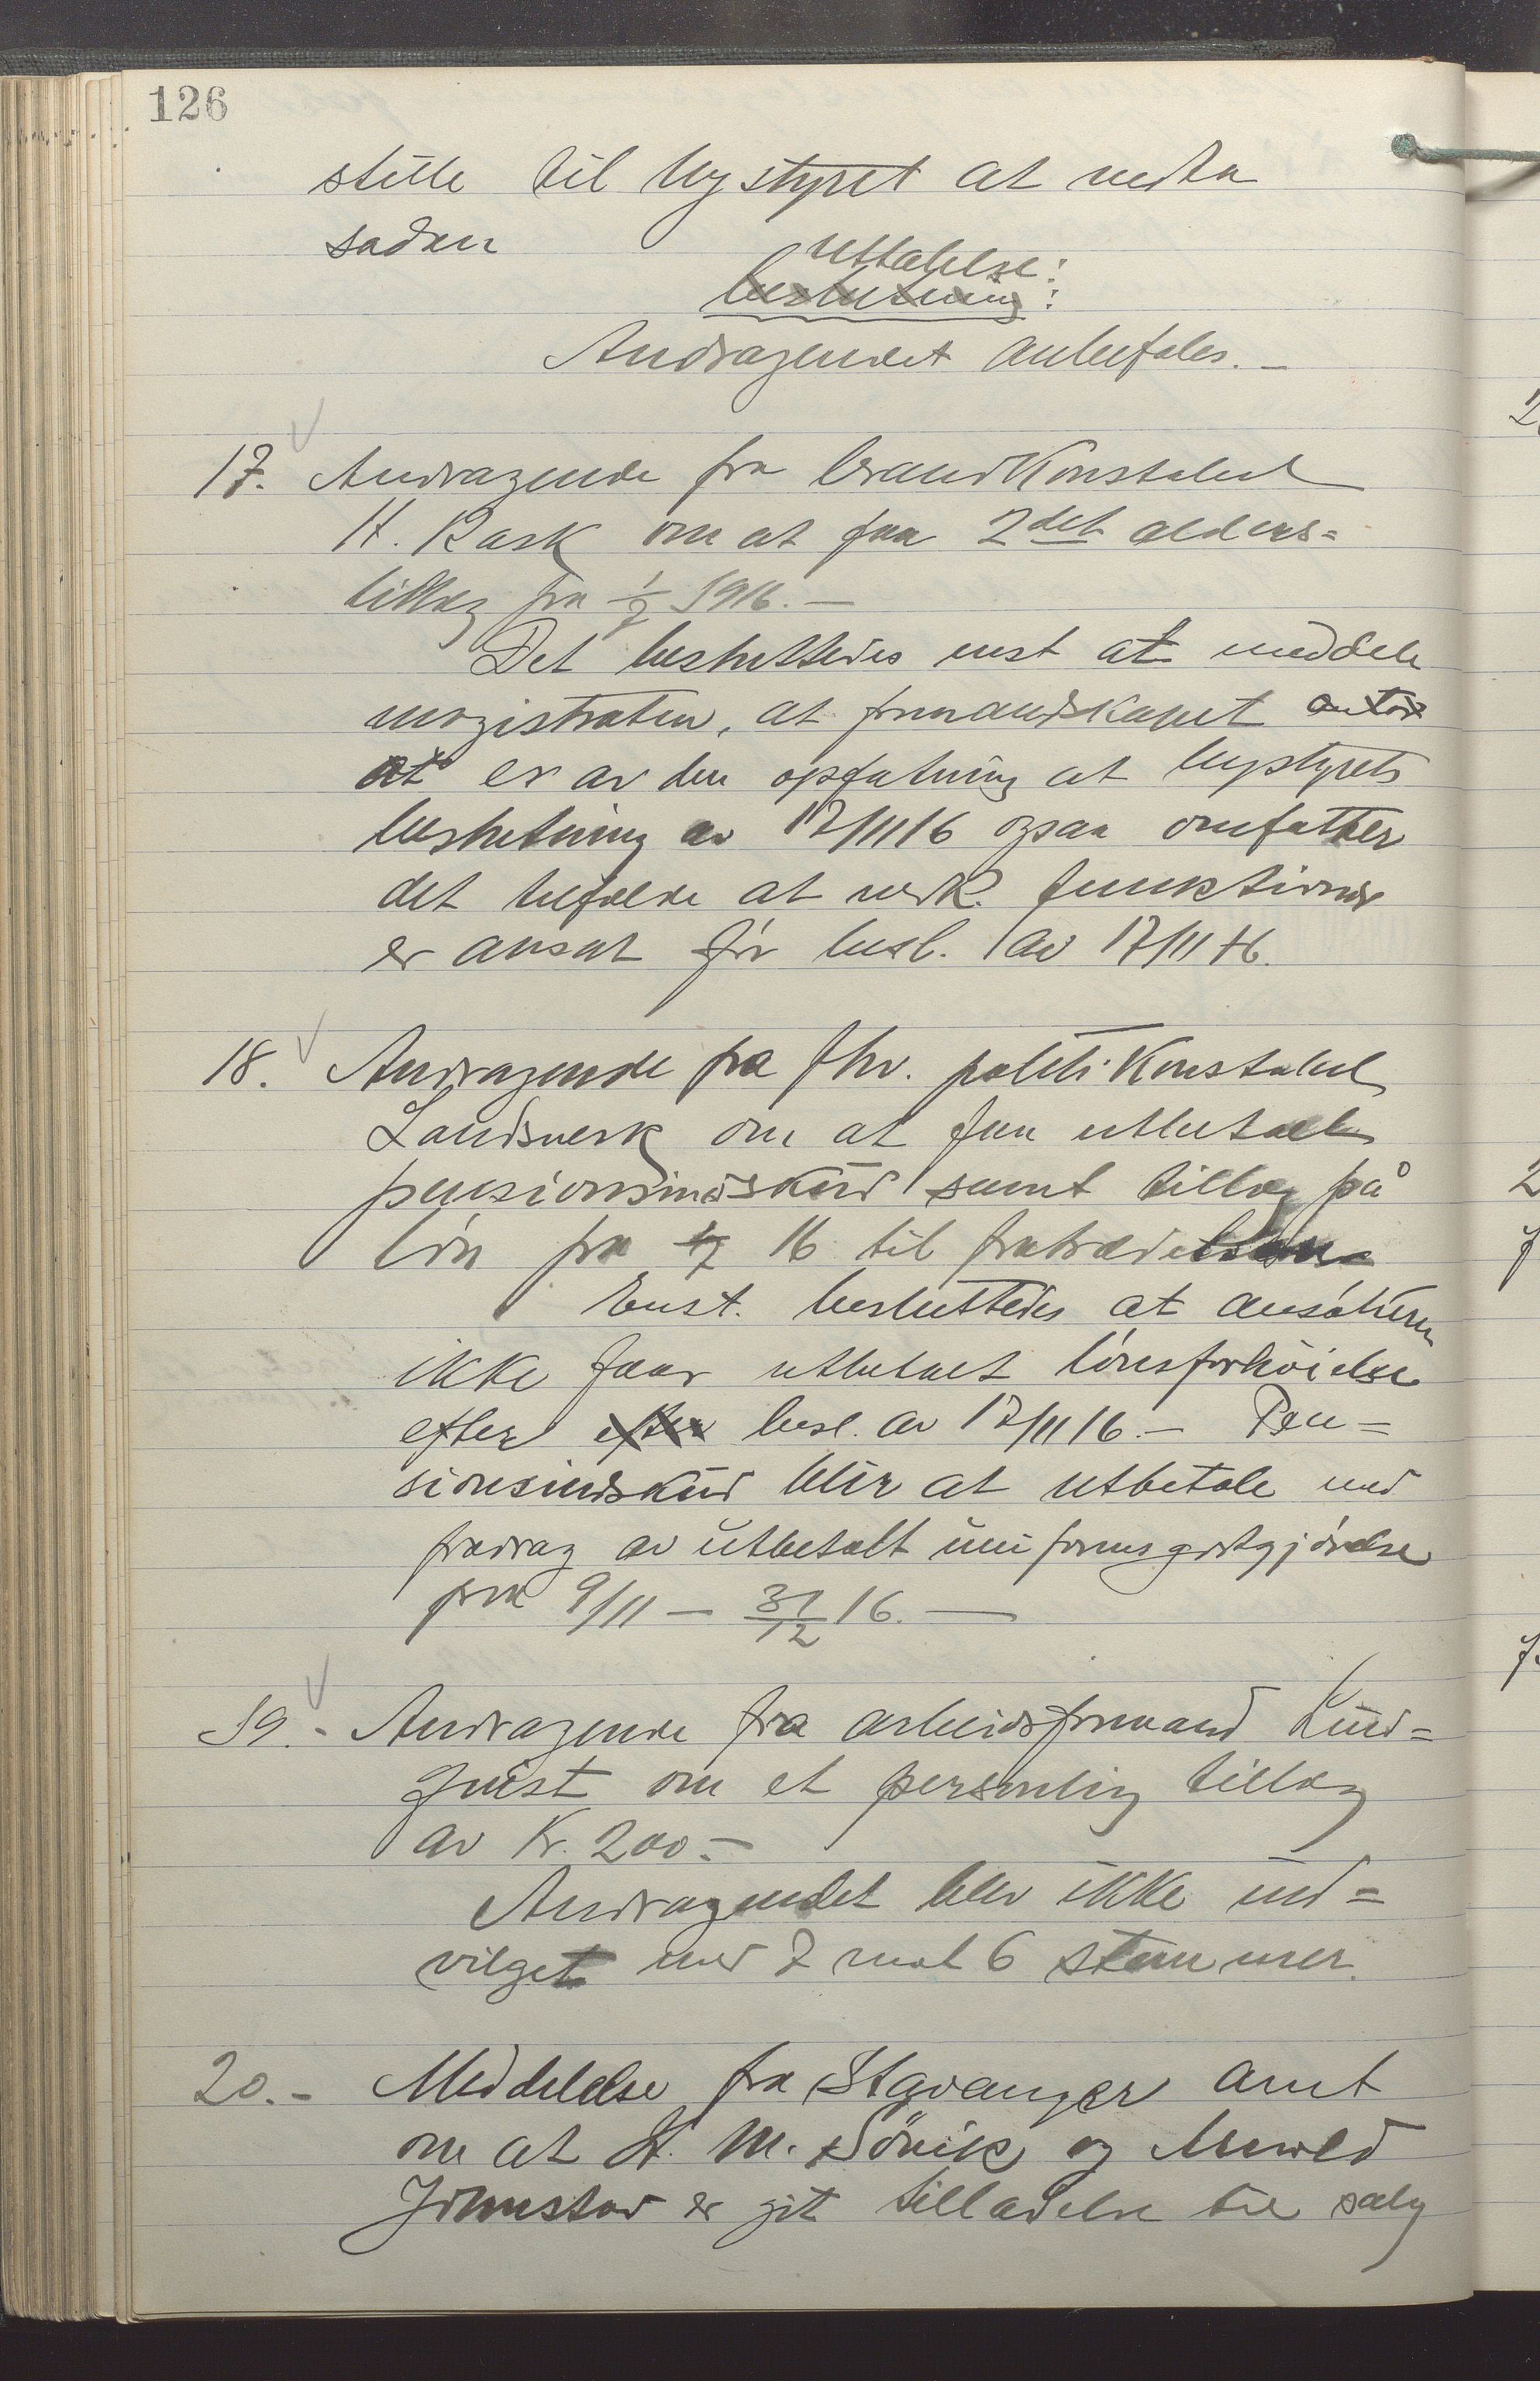 126
stille til bystyret at vedta
sadan
uttalelse:
beslutning:
Andragendet anbefales. –
17. Andragende fra brandkonstabel
H. Rask om at faa 2det alders=
tillæg fra 1/7 1916. –
Det besluttedes enst at meddele
magistraten, at formandskapet
at er av den opfatning at bystyrets
beslutning av 17/11 16 ogsaa omfatter
det tilfælde at vedk. funktionær
er ansat før besl. av 17/11 16.
18. Andragende fra fhv. politikonstabel
Landsverk om at faa utbetalt
pensionsindskud samt tillæg på
løn fra 1/7 16 til fratrædelsen
Enst. besluttedes at ansøkeren
ikke faar utbetalt lønsforhøielse
efter efter besl. av 17/11 16. – Pen=
sionsindskud blir at utbetale med
fradrag av utbetalt uniformsgodtgjørelse
fra 9/11 – 31/12 16. –
19. - Andragende fra arbeidsformand Lind=
quist om et personlig tillæg
av Kr. 200. –
Andragendet blev ikke ind=
vilget med 7 mot 6 stemmer.
20. - Meddelelse fra Stavanger amt
om at H. M. Sövik og
er git tilladelse til salg